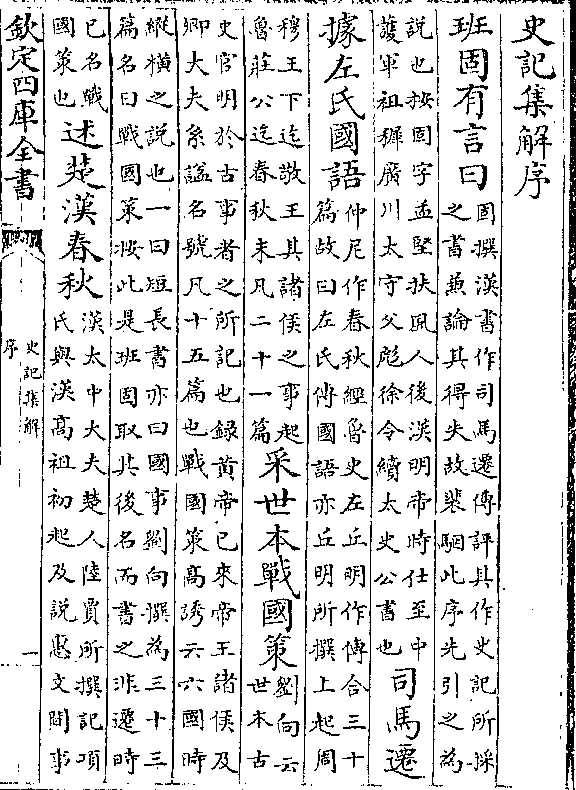 史記集解序
班固有言曰
固撰漢書作司馬遷傳評其作史記所採
之書兼論其得失故裴駰此序先引之為
說也按固字孟堅扶風人後漢明帝時仕至中
護軍祖穉廣川太守父彪徐令續太史公書也
司馬遷
據左氏國語
仲尼作春秋經魯史左丘明作傳合三十
篇故曰左氏傳國語亦丘明所撰上起周
穆王下迄敬王其諸侯之事起
魯莊公迄春秋末凡二十一篇
采世本戰國策
劉向云
世本古
史官明於古事者之所記也錄黃帝已來帝王諸侯及
卿大夫系諡名號凡十五篇也戰國策高誘云六國時
縱橫之說也一曰短長書亦曰國事劉向撰為三十三
篇名曰戰國策按此是班固取其後名而書之非遷時
已名戰
國策也
述楚漢春秋
漢太中大夫楚人陸賈所撰記項
氏與漢高祖初起及說惠文間事
欽定四庫全書
史記集解
序
一